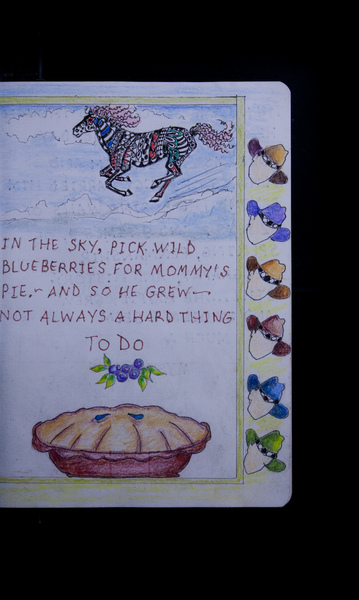 IN THE SKY, PICK WILD
BLUEBERRIES FOR MOMMY'S
PIE.~ AND SO HE GREW~
NOT ALWAYS A HARD THING
TO DO